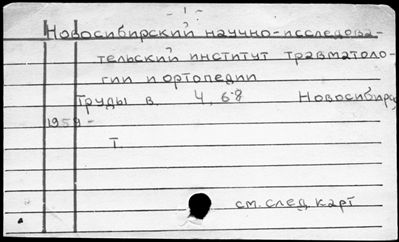 - 1 -
Новосибирский научно-исследова-
тельский институт травматоло-
гии и ортопедии
Труды в. 4, 6-8 Новосибирс
1959-
Т
см. след. карт